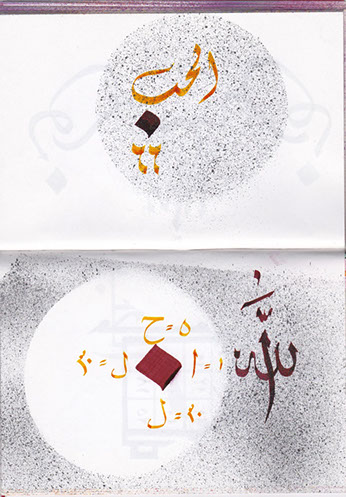 الحب
٦٦
٥ = ح
الله
١ = ا
ل = ٣٠
٣٠ = ل